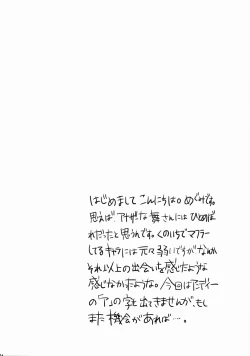 はじめまして こんにちは。めぐみです。
思えば アケザな 舞さんには ひとめぼ
れだったと思うれです。くのいちでマフラー
してるキャラには元々弱いですが なんか
それ以上の出会いを感じたような
感じなかったような。今回はアンディー
の「ア」の字も出てきませんが、もし
また 機会があれば…。